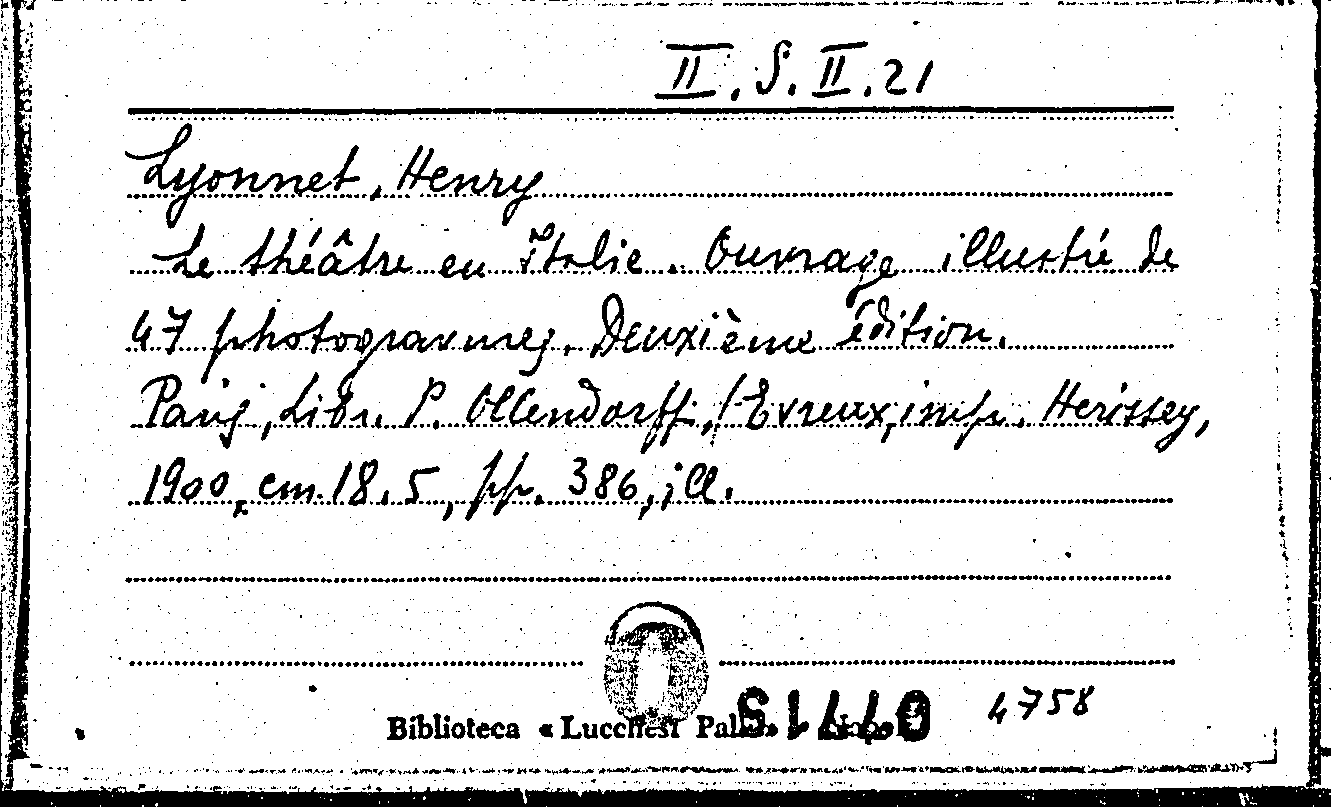 II. S. II. 21
Lyonnet, Henry
Le théâtre en Italie. Ouvrage illustré de
47 photogravures. Deuxième édition.
Paris, Libr. P. Ollendorff, /Evreux, imp. Herissey,
1900, cm. 18.5, pp. 386, ill.
4758
Biblioteca « Lucchesi Palli